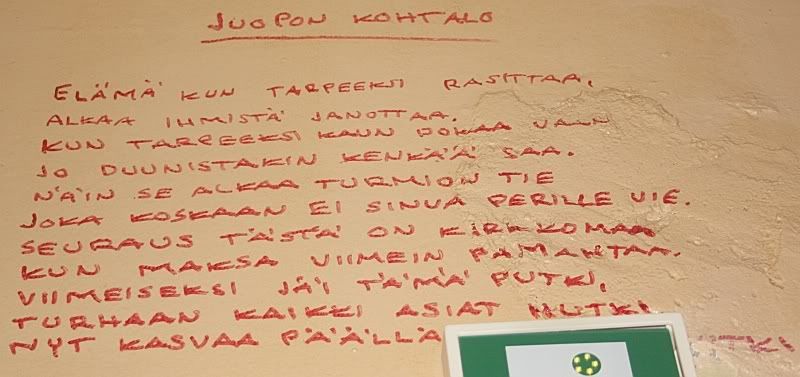 JUOPON KOHTALO
ELÄMÄ KUN TARPEEKSI RASITTAA,
ALKAA IHMISTÄ JANOTTAA.
KUN TARPEEKSI KAUN DOKAA VAAN
JO DUUNISTAKIN KENKÄÄ SAA.
NÄIN SE ALKAA TURMION TIE
JOKA KOSKAAN EI SINUA PERILLE VIE.
SEURAUS TÄSTÄ ON KIRKKOMAA
KUN MAKSA VIIMEIN PAMAHTAA.
VIIMEISEKSI JÄI TÄMÄ PUTKI,
TURHAAN KAIKKI ASIAT HUTKI
NYT KASVAA PÄÄLLÄ